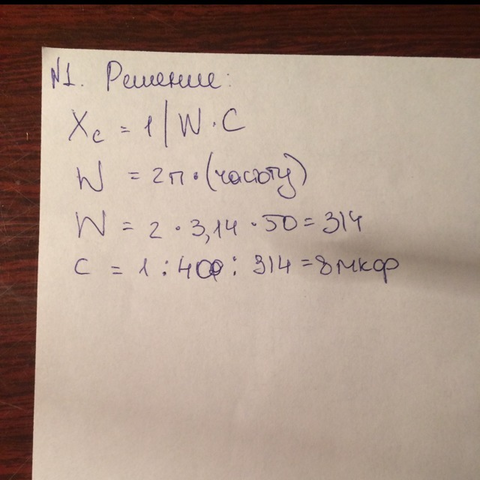 №1. Решение:
Xc = 1 | W · C
W = 2π · (частоту)
W = 2 · 3,14 · 50 = 314
C = 1 : 400 : 314 = 8 мкФ